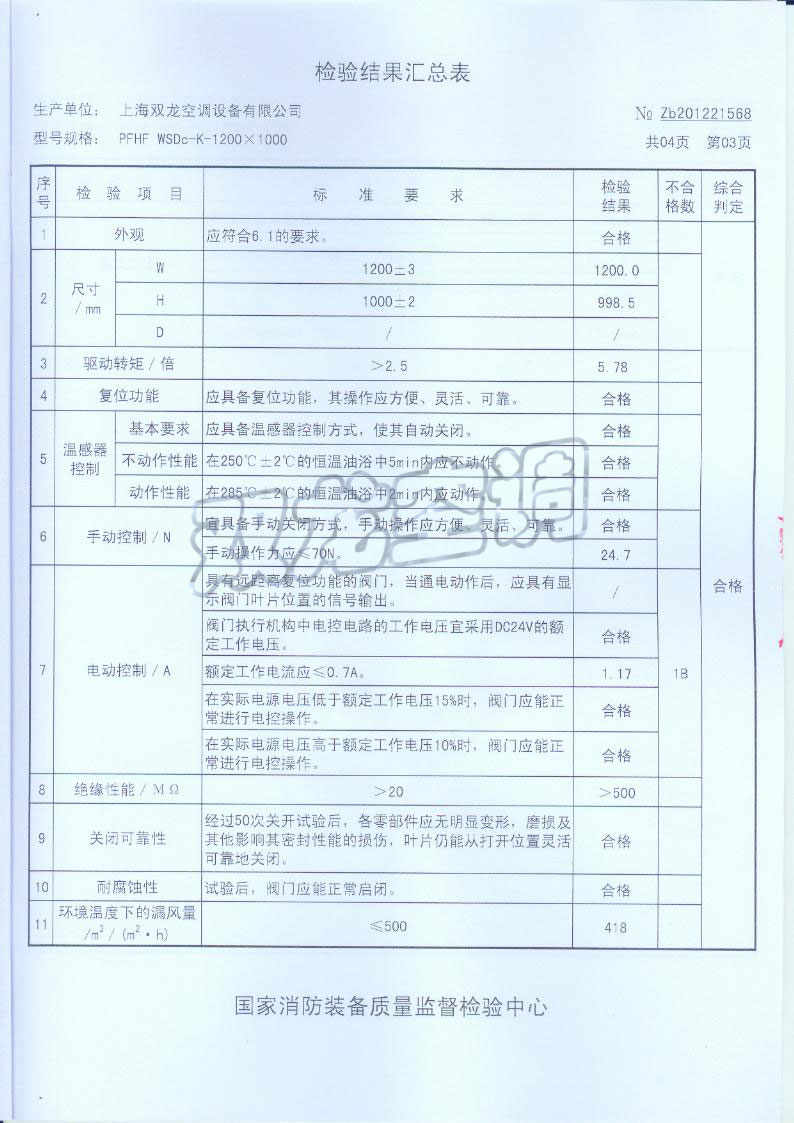 检验结果汇总表
生产单位： 上海双龙空调设备有限公司
№ Zb201221568
型号规格： PFHF WSDc-K-1200×1000
共04页 第03页
序号 检验项目 标准要求 检验结果 不合格数 综合判定
1 外观 应符合6.1的要求。 合格
2 尺寸/mm W 1200±3 1200.0
H 1000±2 998.5
D / /
3 驱动转矩/倍 >2.5 5.78
4 复位功能 应具备复位功能，其操作应方便、灵活、可靠。 合格
5 温感器控制 基本要求 应具备温感器控制方式，使其自动关闭。 合格
不动作性能 在250℃±2℃的恒温油浴中5min内应不动作。 合格
动作性能 在285℃±2℃的恒温油浴中2min内应动作。 合格
6 手动控制/N 宜具备手动关闭方式，手动操作应方便、灵活、可靠。 合格
手动操作力应≤70N。 24.7
7 电动控制/A 具有远距离复位功能的阀门，当通电动作后，应具有显
示阀门叶片位置的信号输出。 /
阀门执行机构中电控电路的工作电压宜采用DC24V的额
定工作电压。 合格
额定工作电流应≤0.7A。 1.17 1B
在实际电源电压低于额定工作电压15%时，阀门应能正
常进行电控操作。 合格
在实际电源电压高于额定工作电压10%时，阀门应能正
常进行电控操作。 合格
合格
8 绝缘性能/MΩ >20 >500
9 关闭可靠性 经过50次关开试验后，各零部件应无明显变形，磨损及
其他影响其密封性能的损伤，叶片仍能从打开位置灵活
可靠地关闭。 合格
10 耐腐蚀性 试验后，阀门应能正常启闭。 合格
11 环境温度下的漏风量
/m³/(m²·h) ≤500 418
双龙空调
国家消防装备质量监督检验中心